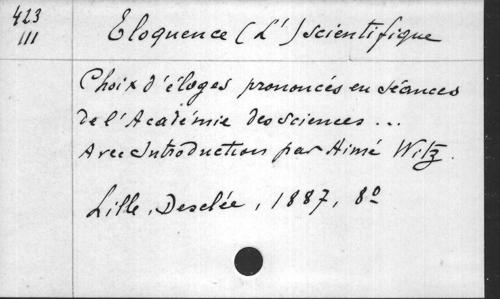 423
III
Eloquence (L') scientifique
Choix d'éloges prononcés en séances
de l'Académie des sciences ...
Avec Introduction par Aimé Witz.
Lille, Desclée, 1887, 8º